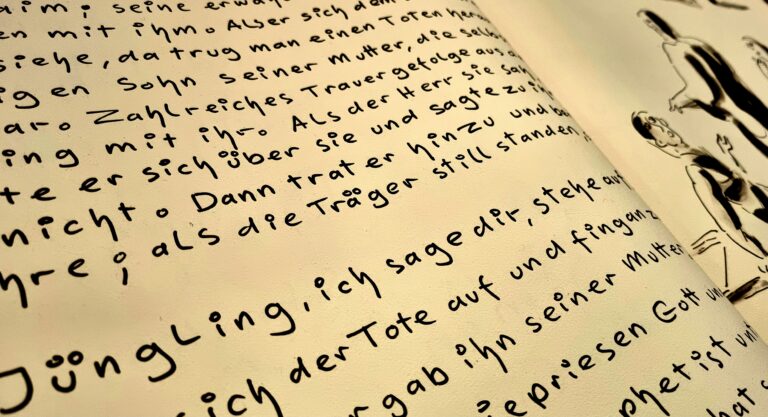 seine erwäh
mit ihm. Als er sich dem
siehe, da trug man einen Toten her
igen Sohn seiner Mutter, die selb
Zahlreiches Trauergefolge aus
ing mit ihr. Als der Herr sie sah
te er sich über sie und sagte zu ih
nicht. Dann trat er hinzu und be
hre; als die Träger still standen,
Jüngling, ich sage dir, stehe auf
sich der Tote auf und fing an z
rgab ihn seiner Mutter
iepriesen Gott un
phet ist unt
hat s